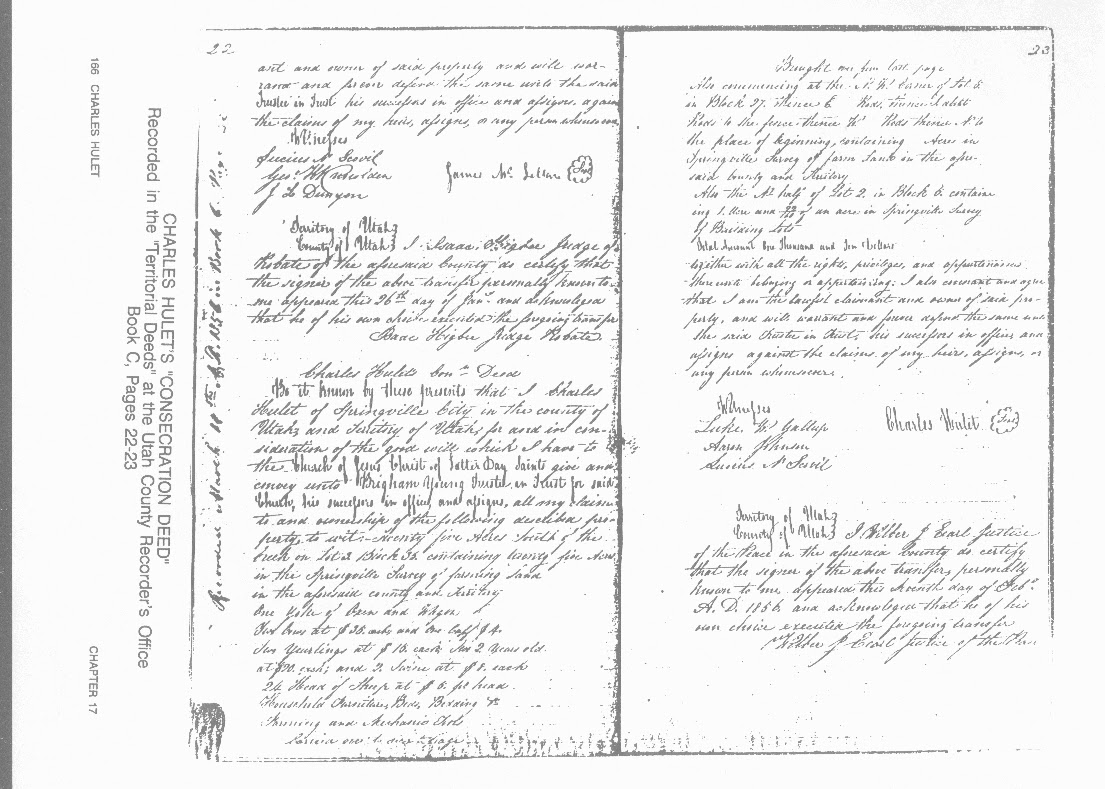 166 CHARLES HULET
CHAPTER 17
CHARLES HULET'S "CONSECRATION DEED"
Recorded in the "Territorial Deeds" at the Utah County Recorder's Office
Book C, Pages 22-23
22
ant and owner of said property and will war-
rand and forever defend the same unto the said
Trustee in Trust his successors in office and assigns against
the claims of my heirs, assigns, or any person whomsoever
Witnesses
Lucius N Scovil
Geo.
J L Dunyon
James Mc
Territory of Utah
County of Utah I Isaac Higbee Judge of
Probate of the aforesaid County do certify that
the signer of the above transfer personally known to
me appeared this 26th day of Jan. and acknowledged
that he of his own choice executed the foregoing transfer
Isaac Higbee Judge Probate
Charles Hulets Con Deed
Be it known by these presents that I Charles
Hulet of Springville City in the county of
Utah and Territory of Utah for and in con-
sideration of the good will which I have to
the Church of Jesus Christ of Latter Day Saints give and
convey unto Brigham Young Trustee in Trust for said
Church, his successors in office and assigns, all my claims
to and ownership of the following described pro-
perty, to wit- Twenty five Acres South of the
creek on Lot 2 Block 32 containing twenty five Acres
in the Springville Survey of farming land
in the aforesaid county and Territory
One Yoke of Oxen and Wagon
Two Cows at $ each and One Calf $4.
Two Yearlings at $ 10. each Two 2 Years old
at $ each; and 2 Swine at $8. each
24 Head of Sheep at $ 6. per head.
Household Furniture, Beds, Bedding &c
Farming and Mechanic Tools
Carried over to next Page
23
Brought over from last page
Also commencing at the N. W. Corner of Lot 6
in Block 27. Thence E Rods, thence S
Rods to the fence thence W Rods thence N. to
the place of beginning, containing Acres in
Springville Survey of farm Land in the afore-
said County and Territory
Also the N. half of Lot 2. in Block 6. contain
ing 1. Acre and of an acre in Springville Survey
of Building Lots
Total Amount One Thousand and Ten Dollars
together with all the rights, privileges, and appurtenances
thereunto belonging or appertaining; I also covenant and agree
that I am the lawful claimant and owner of said pro-
perty, and will warrant and forever defend the same unto
the said Trustee in Trust, his successors in office and
assigns against the claims of my heirs, assigns, or
any person whomsoever.
Witnesses
Luke W. Gallup
Aaron Johnson
Lucius N Scovil
Charles Hulit
Territory of Utah
County of Utah I Wilber J Earl Justice
of the Peace in the aforesaid County do certify
that the signer of the above transfer, personally
known to me, appeared this Seventh day of Feb.
A. D. 1856 and acknowledged that he of his
own choice executed the foregoing transfer
Wilber J Earl Justice of the Peace